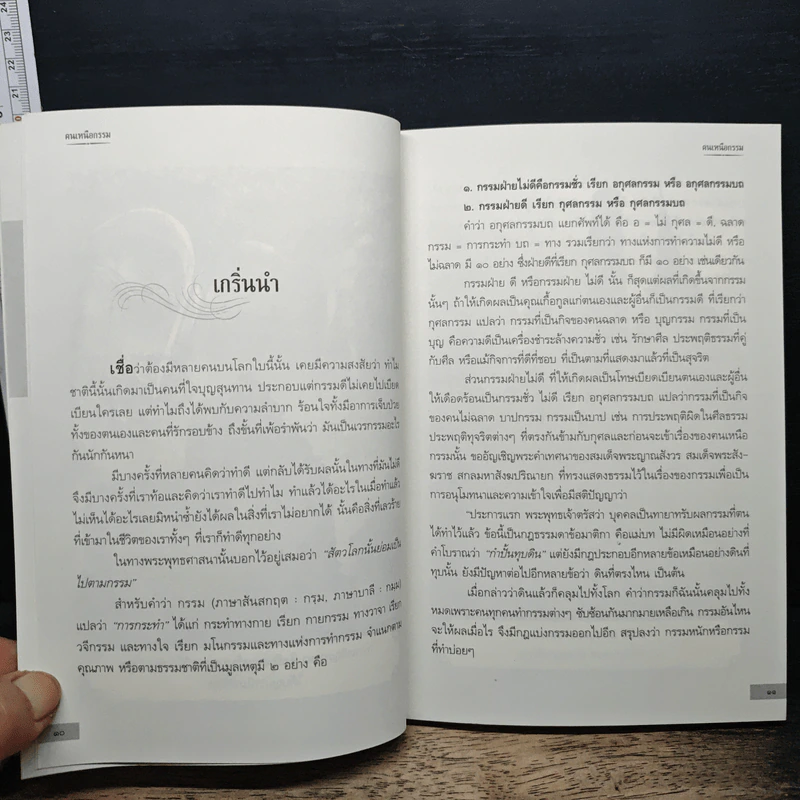 คนเหนือกรรม
เกริ่นนำ
เชื่อว่าต้องมีหลายคนบนโลกใบนี้นั้น เคยมีความสงสัยว่า ทำไม
ชาตินี้นั้นเกิดมาเป็นคนที่ใจบุญสุนทาน ประกอบแต่กรรมดีไม่เคยไปเบียด
เบียนใครเลย แต่ทำไมถึงได้พบกับความลำบาก ร้อนใจทั้งมีอาการเจ็บป่วย
ทั้งของตนเองและคนที่รักรอบข้าง ถึงขั้นที่เพ้อรำพันว่า มันเป็นเวรกรรมอะไร
กันนักกันหนา
มีบางครั้งที่หลายคนคิดว่าทำดี แต่กลับได้รับผลนั้นในทางที่มันไม่ดี
จึงมีบางครั้งที่เราท้อและคิดว่าเราทำดีไปทำไม ทำแล้วได้อะไรในเมื่อทำแล้ว
ไม่เห็นได้อะไรเลยมิหนำซ้ำยังได้ผลในสิ่งที่เราไม่อยากได้ นั่นคือสิ่งที่เลวร้าย
ที่เข้ามาในชีวิตของเราทั้งๆ ที่เราก็ทำดีทุกอย่าง
ในทางพระพุทธศาสนานั้นบอกไว้อยู่เสมอว่า "สัตวโลกนั้นย่อมเป็น
ไปตามกรรม"
สำหรับคำว่า กรรม (ภาษาสันสกฤต : กรฺม, ภาษาบาลี : กมฺม)
แปลว่า "การกระทำ" ได้แก่ กระทำทางกาย เรียก กายกรรม ทางวาจา เรียก
วจีกรรม และทางใจ เรียก มโนกรรมและทางแห่งการทำกรรม จำแนกตาม
คุณภาพ หรือตามธรรมชาติที่เป็นมูลเหตุมี ๒ อย่าง คือ
๑๐
คนเหนือกรรม
๑. กรรมฝ่ายไม่ดีคือกรรมชั่ว เรียก อกุศลกรรม หรือ อกุศลกรรมบถ
๒. กรรมฝ่ายดี เรียก กุศลกรรม หรือ กุศลกรรมบถ
คำว่า อกุศลกรรมบถ แยกศัพท์ได้ คือ อ = ไม่ กุศล = ดี, ฉลาด
กรรม = การกระทำ บถ = ทาง รวมเรียกว่า ทางแห่งการทำความไม่ดี หรือ
ไม่ฉลาด มี ๑๐ อย่าง ซึ่งฝ่ายดีที่เรียก กุศลกรรมบถ ก็มี ๑๐ อย่าง เช่นเดียวกัน
กรรมฝ่าย ดี หรือกรรมฝ่าย ไม่ดี นั้น ก็สุดแต่ผลที่เกิดขึ้นจากกรรม
นั้นๆ ถ้าให้เกิดผลเป็นคุณเกื้อกูลแก่ตนเองและผู้อื่นก็เป็นกรรมดี ที่เรียกว่า
กุศลกรรม แปลว่า กรรมที่เป็นกิจของคนฉลาด หรือ บุญกรรม กรรมที่เป็น
บุญ คือความดีเป็นเครื่องชำระล้างความชั่ว เช่น รักษาศีล ประพฤติธรรมที่คู่
กับศีล หรือแม้กิจการที่ดีที่ชอบ ที่เป็นตามที่แสดงมาแล้วที่เป็นสุจริต
ส่วนกรรมฝ่ายไม่ดี ที่ให้เกิดผลเป็นโทษเบียดเบียนตนเองและผู้อื่น
ให้เดือดร้อนเป็นกรรมชั่ว ไม่ดี เรียก อกุศลกรรม แปลว่ากรรมที่เป็นกิจ
ของคนไม่ฉลาด บาปกรรม กรรมเป็นบาป เช่น การประพฤติผิดในศีลธรรม
ประพฤติทุจริตต่างๆ ที่ตรงกันข้ามกับกุศลและก่อนจะเข้าเรื่องของคนเหนือ
กรรมนั้น ขออัญเชิญพระคำเทศนาของสมเด็จพระญาณสังวร สมเด็จพระสัง-
ฆราช สกลมหาสังฆปริณายก ที่ทรงแสดงธรรมไว้ในเรื่องของกรรมเพื่อเป็น
การอนุโมทนาและความเข้าใจเพื่อมีสติปัญญาว่า
"ประการแรก พระพุทธเจ้าตรัสว่า บุคคลเป็นทายาทรับผลกรรมที่ตน
ได้ทำไว้แล้ว ข้อนี้เป็นกฎธรรมดาข้อมาติกา คือแม่บท ไม่มีผิดเหมือนอย่างที่
คำโบราณว่า "กำปั้นทุบดิน" แต่ยังมีกฎประกอบอีกหลายข้อเหมือนอย่างดินที่
ทุบนั้น ยังมีปัญหาต่อไปอีกหลายข้อว่า ดินที่ตรงไหน เป็นต้น
เมื่อกล่าวว่าดินแล้วก็คลุมไปทั้งโลก คำว่ากรรมก็ฉันนั้นคลุมไปทั้ง
หมดเพราะคนทุกคนทำกรรมต่างๆ ซับซ้อนกันมากมายเหลือเกิน กรรมอันไหน
จะให้ผลเมื่อไร จึงมีกฎแบ่งกรรมออกไปอีก สรุปลงว่า กรรมหนักหรือกรรม
ที่ทำบ่อยๆ
๑๑
23
22
21